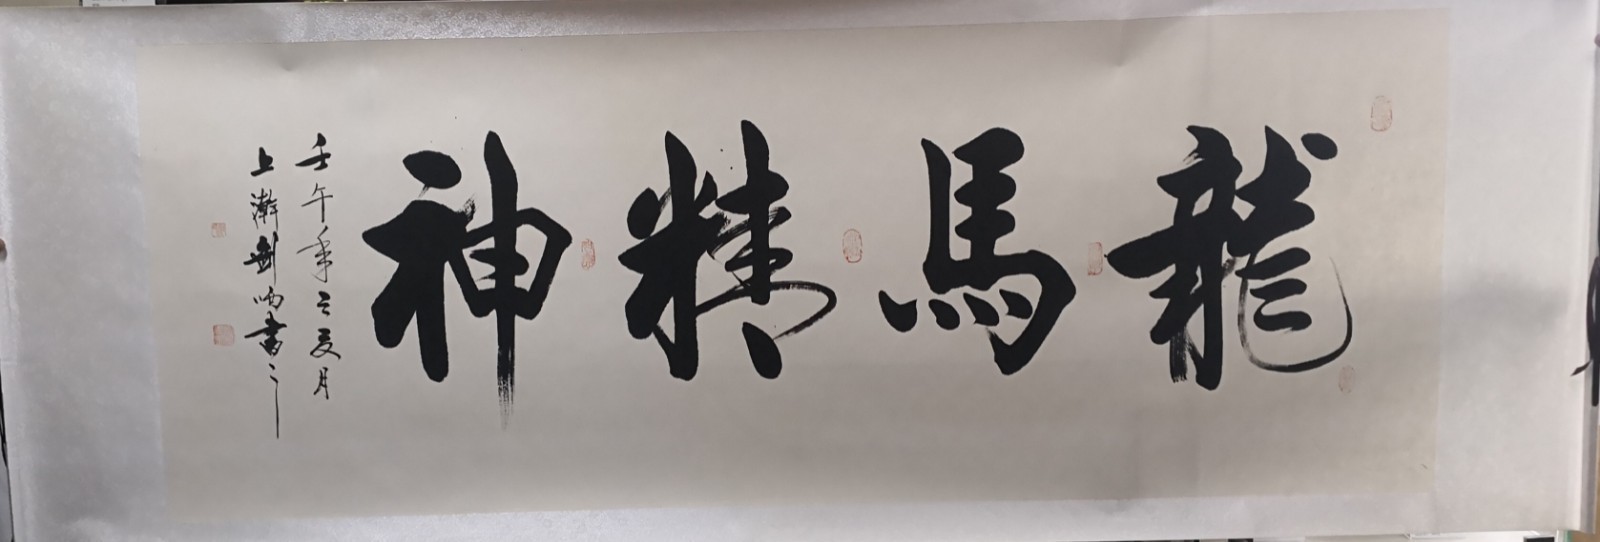 龍馬精神
壬午年之夏月
上瀚劍鳴書之